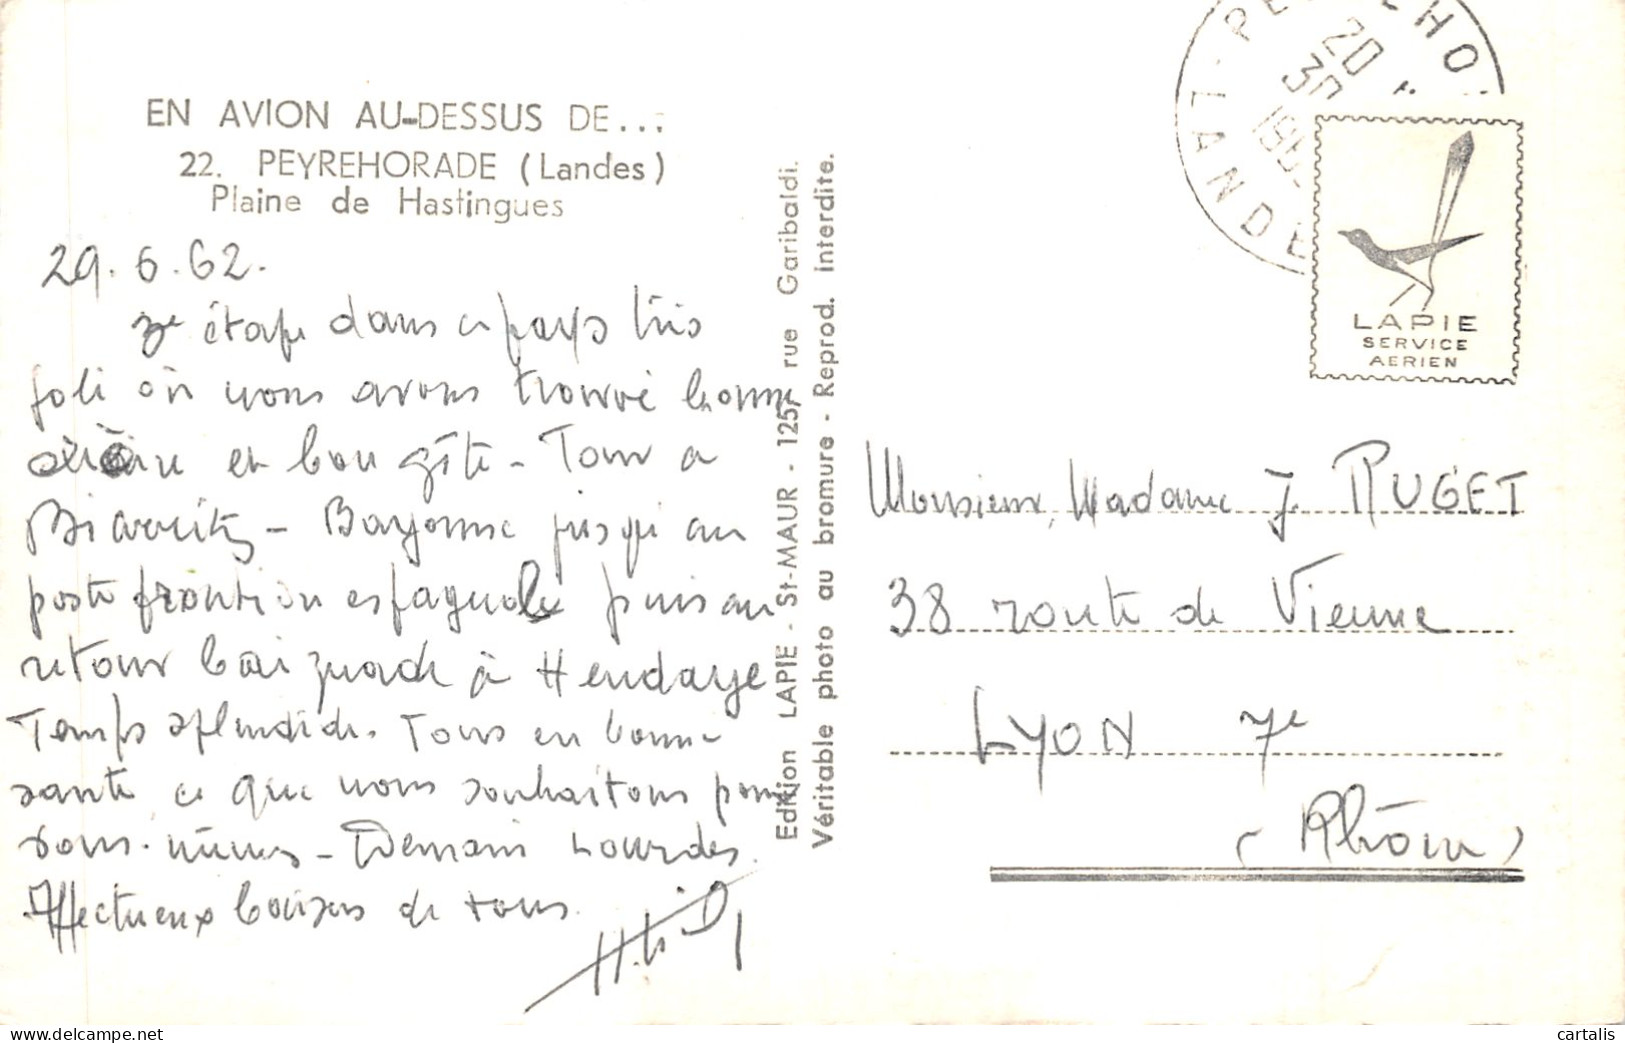 EN AVION AU-DESSUS DE...
22. PEYREHORADE (Landes)
Plaine de Hastingues
29.6.62.
étape dans ce pays très
joli où nous avons trouvé bonne
et bon gîte - Tour à
Biarritz - Bayonne jusqu'au
poste frontière espagnole puis au
retour baignade à Hendaye
Temps splendide. Tous en bonne
santé, ce que nous souhaitons pour
vous-mêmes - Demain Lourdes.
Affectueux baisers de tous.
Edition LAPIE - St-MAUR - 125, rue Garibaldi.
Véritable photo au bromure - Reprod. interdite.
20
30
LANDES
LAPIE
SERVICE
AERIEN
Monsieur, Madame J. RUGET
38 route de Vienne
LYON 7e
(Rhône)
delcampe.net
cartalis